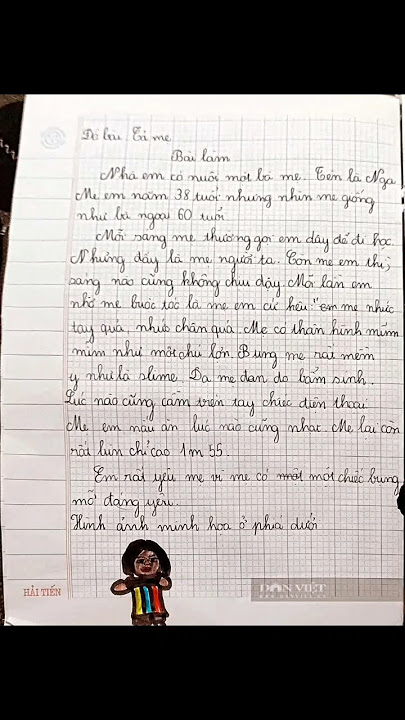 Đề bài: Tả mẹ
Bài làm
Nhà em có nuôi một bà mẹ. Tên là Nga
Mẹ em năm 38 tuổi nhưng nhìn mẹ giống
như bà ngoại 60 tuổi
Mỗi sáng mẹ thường gọi em dậy để đi học.
Nhưng đấy là mẹ người ta. Còn mẹ em thì
sáng nào cũng không chịu dậy. Mỗi lần em
nhờ mẹ buộc tóc là mẹ em cứ kêu "em mẹ nhức
tay quá, nhức chân quá. Mẹ có thân hình mũm
mĩm như một chú lợn. Bụng mẹ rất mềm
y như là slime. Da mẹ đen do bẩm sinh.
Lúc nào cũng cầm trên tay chiếc điện thoại
Mẹ em nấu ăn lúc nào cũng nhạt. Mẹ lại còn
rất lùn chỉ cao 1m 55.
Em rất yêu mẹ vì mẹ có một chiếc bụng
mỡ đáng yêu.
Hình ảnh minh họa ở phía dưới
HẢI TIẾN
DÂN VIỆT